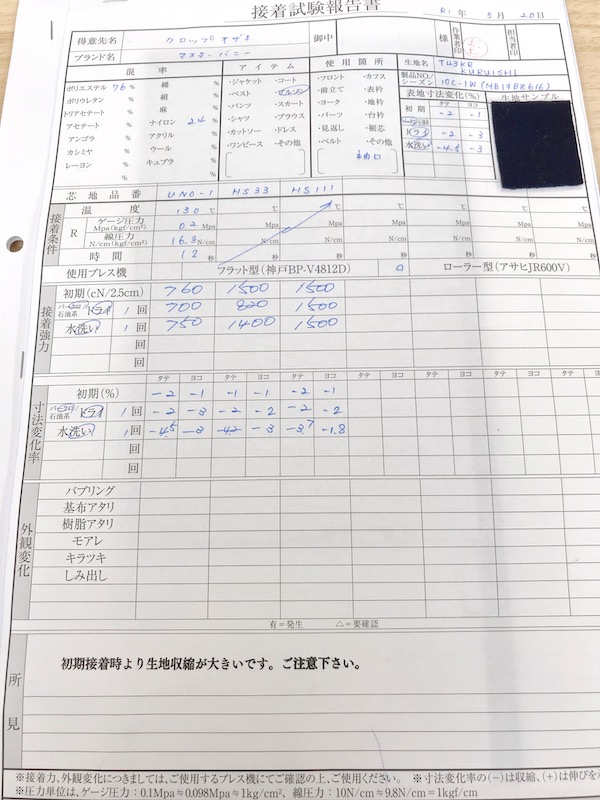 接着試験報告書
R1年 5月 20日
得意先名 クロップオザキ 御中 様 作業者印 担当者印
ブランド名 マスターバニー
混率 アイテム 使用箇所
生地名 TH3KR KURUISHI
製品NO/シーズン 10C-1W (MB19BZ616)
ポリエステル 76 % 綿 %
ポリウレタン % 絹 %
トリアセテート % 麻 %
アセテート % ナイロン 24 %
アンゴラ % アクリル %
カシミヤ % ウール %
レーヨン % キュプラ %
・ジャケット ・コート
・ベスト
・パンツ ・スカート
・シャツ ・ブラウス
・カットソー ・ドレス
・ワンピース ・その他
・フロント ・カフス
・前立て ・表衿
・ヨーク ・地衿
・パーツ ・台衿
・見返し ・裾芯
・ベルト ・その他
袖口
表地寸法変化(%) 生地サンプル
タテ ヨコ
初期 -2 -1
ドライ -2 -3
水洗い -4.5 -3
芯地品番 UNO-1 HS33 HS111
接着条件
温度 130 ℃ ℃ ℃ ℃ ℃ ℃
R
ゲージ圧力 Mpa(kgf/cm²) 0.2 Mpa Mpa Mpa Mpa Mpa Mpa
線圧力 N/cm(kgf/cm²) 16.8 N/cm N/cm N/cm N/cm N/cm N/cm
時間 12 秒 秒 秒 秒 秒 秒
使用プレス機 フラット型(神戸BP-V4812D) ローラー型(アサヒJR600V)
接着強力
初期(cN/2.5cm) 760 1500 1500
石油系 ドライ 1 回 700 820 1500
水洗い 1 回 750 1400 1500
回
回
寸法変化率
タテ ヨコ タテ ヨコ タテ ヨコ タテ ヨコ タテ ヨコ タテ ヨコ
初期(%) -2 -1 -1 -1 -2 -1
石油系 ドライ 1 回 -2 -3 -2 -2 -2 -2
水洗い 1 回 -4.5 -3 -4.2 -3 -3.7 -1.8
回
回
外観変化
バブリング
基布アタリ
樹脂アタリ
モアレ
キラツキ
しみ出し
有=発生 △=要確認
所見
初期接着時より生地収縮が大きいです。ご注意下さい。
※接着力、外観変化につきましては、ご使用するプレス機にてご確認の上、ご使用ください。 ※寸法変化率の(-)は収縮、(+)は伸びを
※圧力単位は、ゲージ圧力:0.1Mpa≒0.098Mpa≒1kg/cm²、線圧力:10N/cm≒9.8N/cm=1kgf/cm